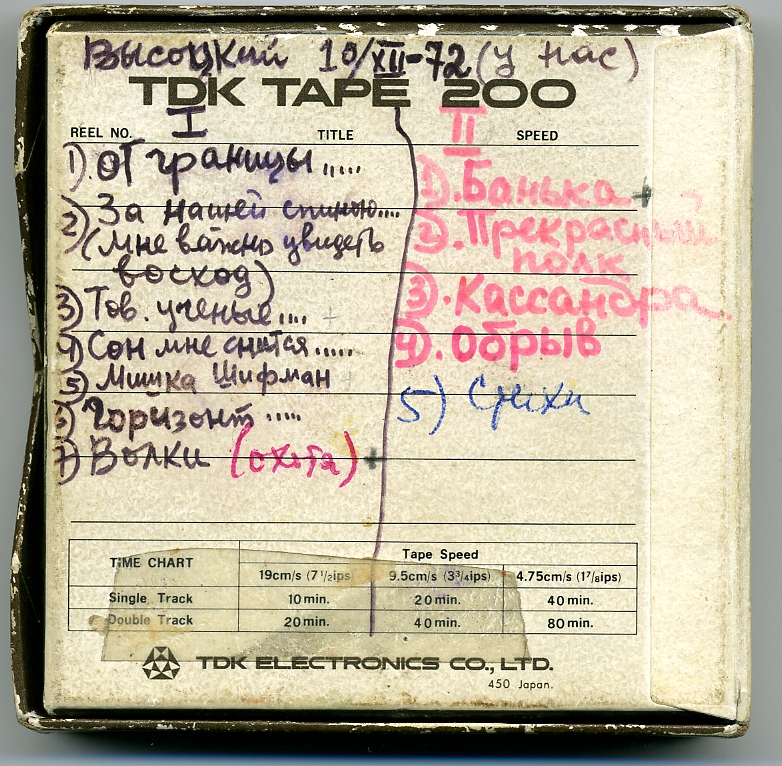 Высоцкий 10/XII-72 (у нас)
TDK TAPE 200
I
II
REEL NO. TITLE SPEED
1). От границы .....
2) За нашей спиною....
(мне важно увидеть
восход)
3) Тов. ученые....
4) Сон мне снится.....
5) Мишка Шифман
6) Горизонт .....
7) Волки (охота) +
1). Банька +
2). Прекрасный
полк
3). Кассандра.
4). Обрыв
5) Стихи
TIME CHART
Tape Speed
19cm/s (7 1/2ips) 9.5cm/s (3 3/4ips) 4.75cm/s (1 7/8ips)
Single Track 10 min. 20 min. 40 min.
Double Track 20 min. 40 min. 80 min.
TDK ELECTRONICS CO., LTD.
450 Japan.